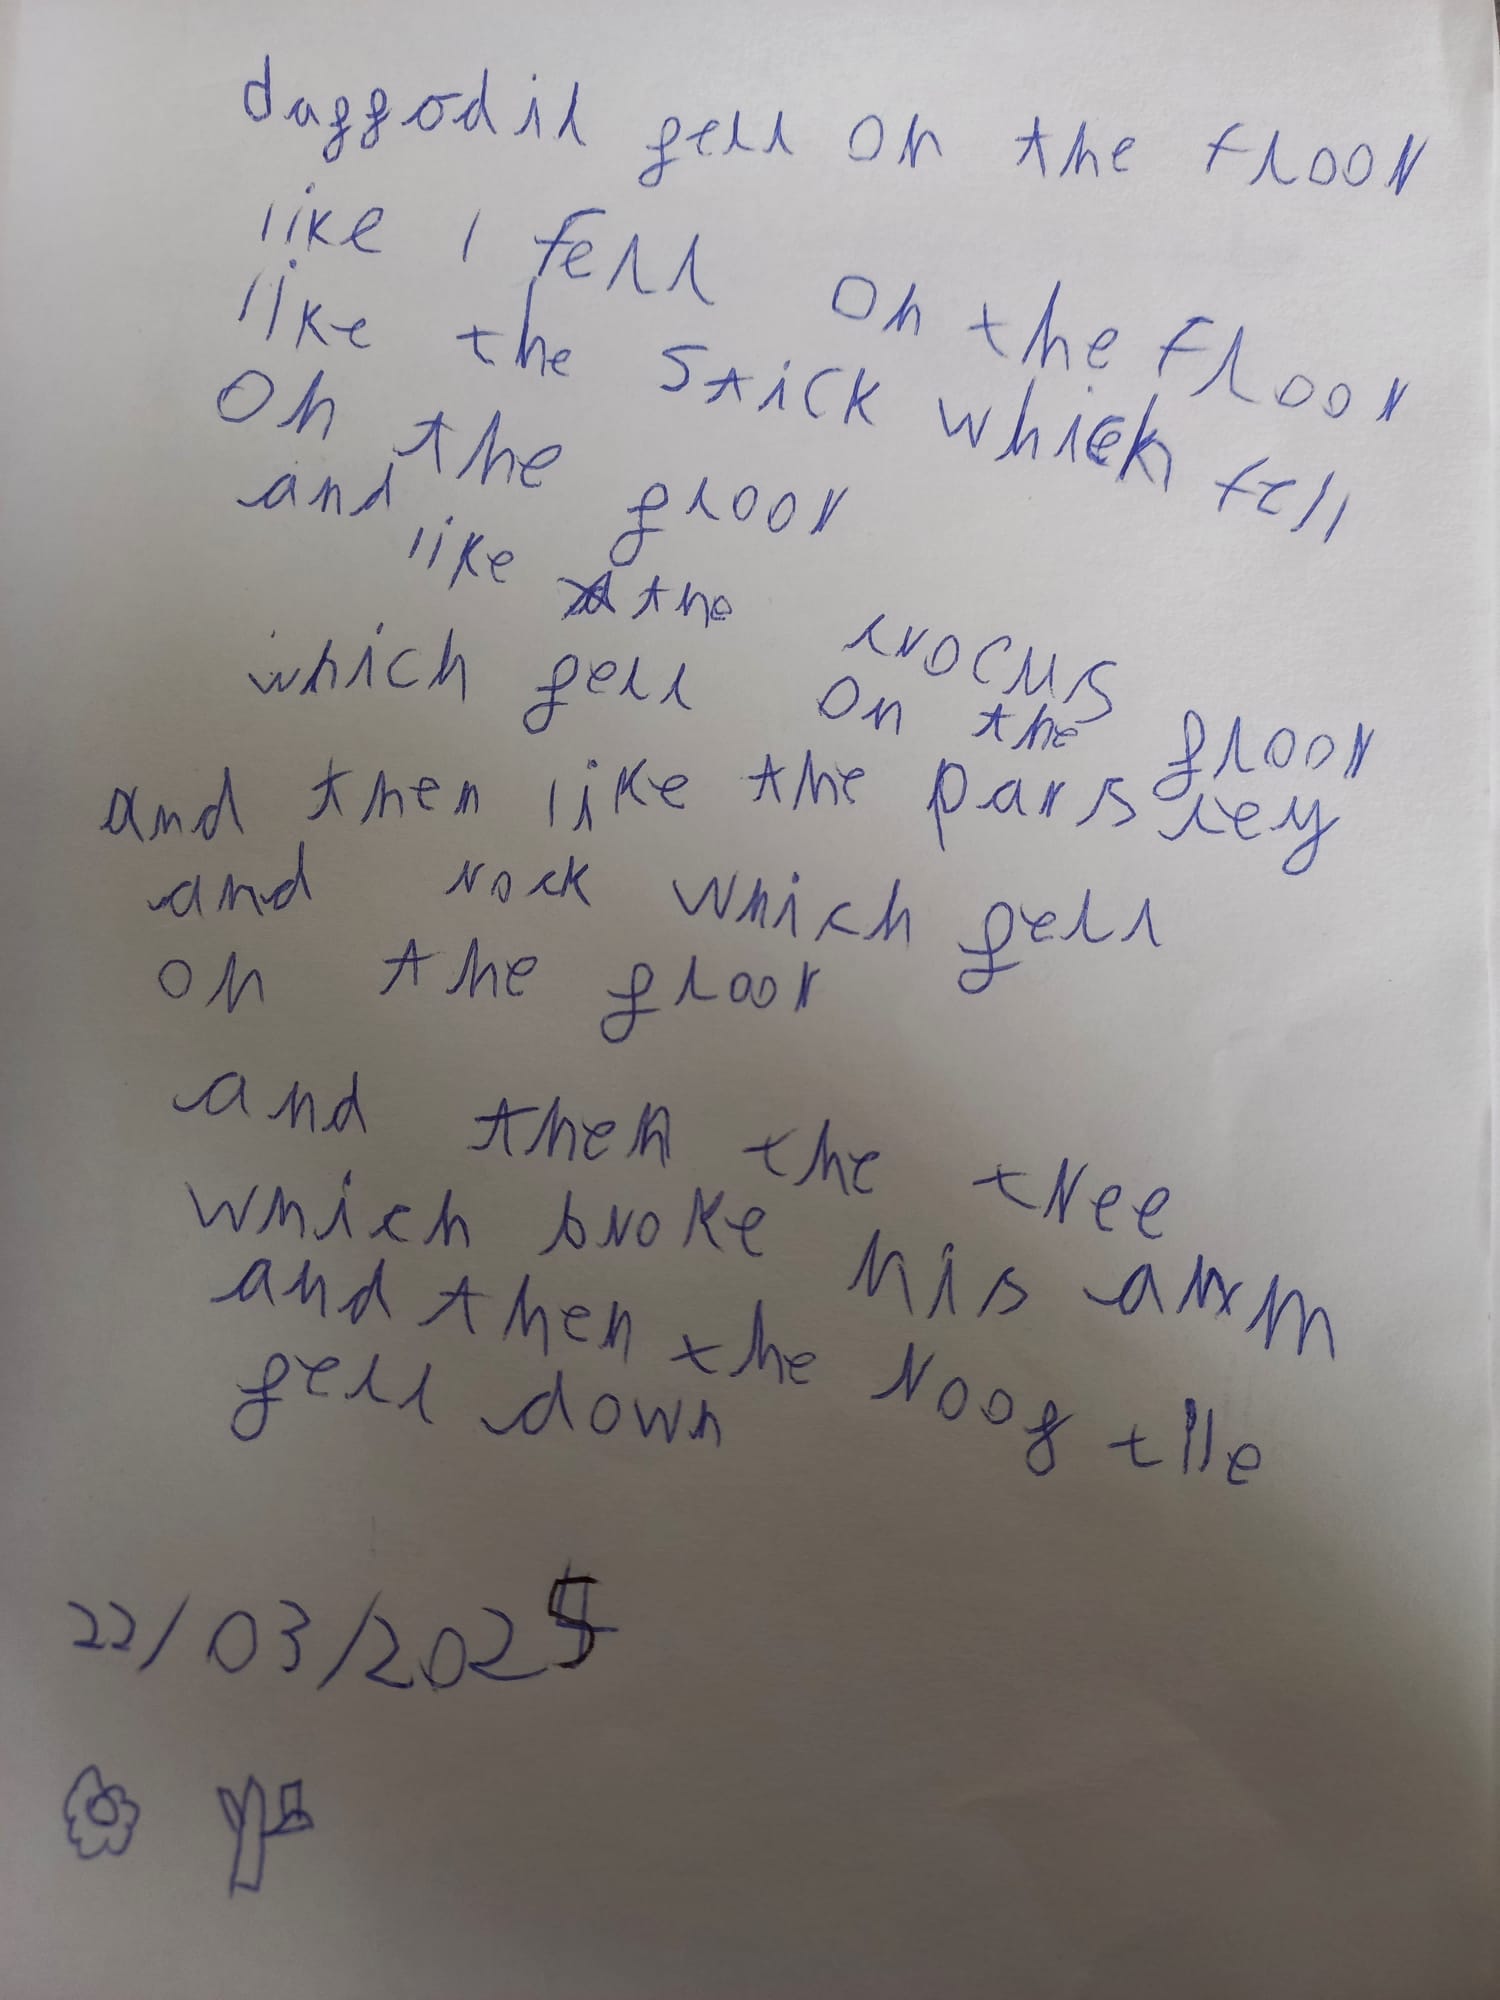 daffodil fell on the floor
like I fell on the floor
like the stick which fell
on the floor
and like the crocus
which fell on the floor
and then like the parsley
and rock which fell
on the floor
and then the tree
which broke his arm
and then the roof tile
fell down
22/03/2025